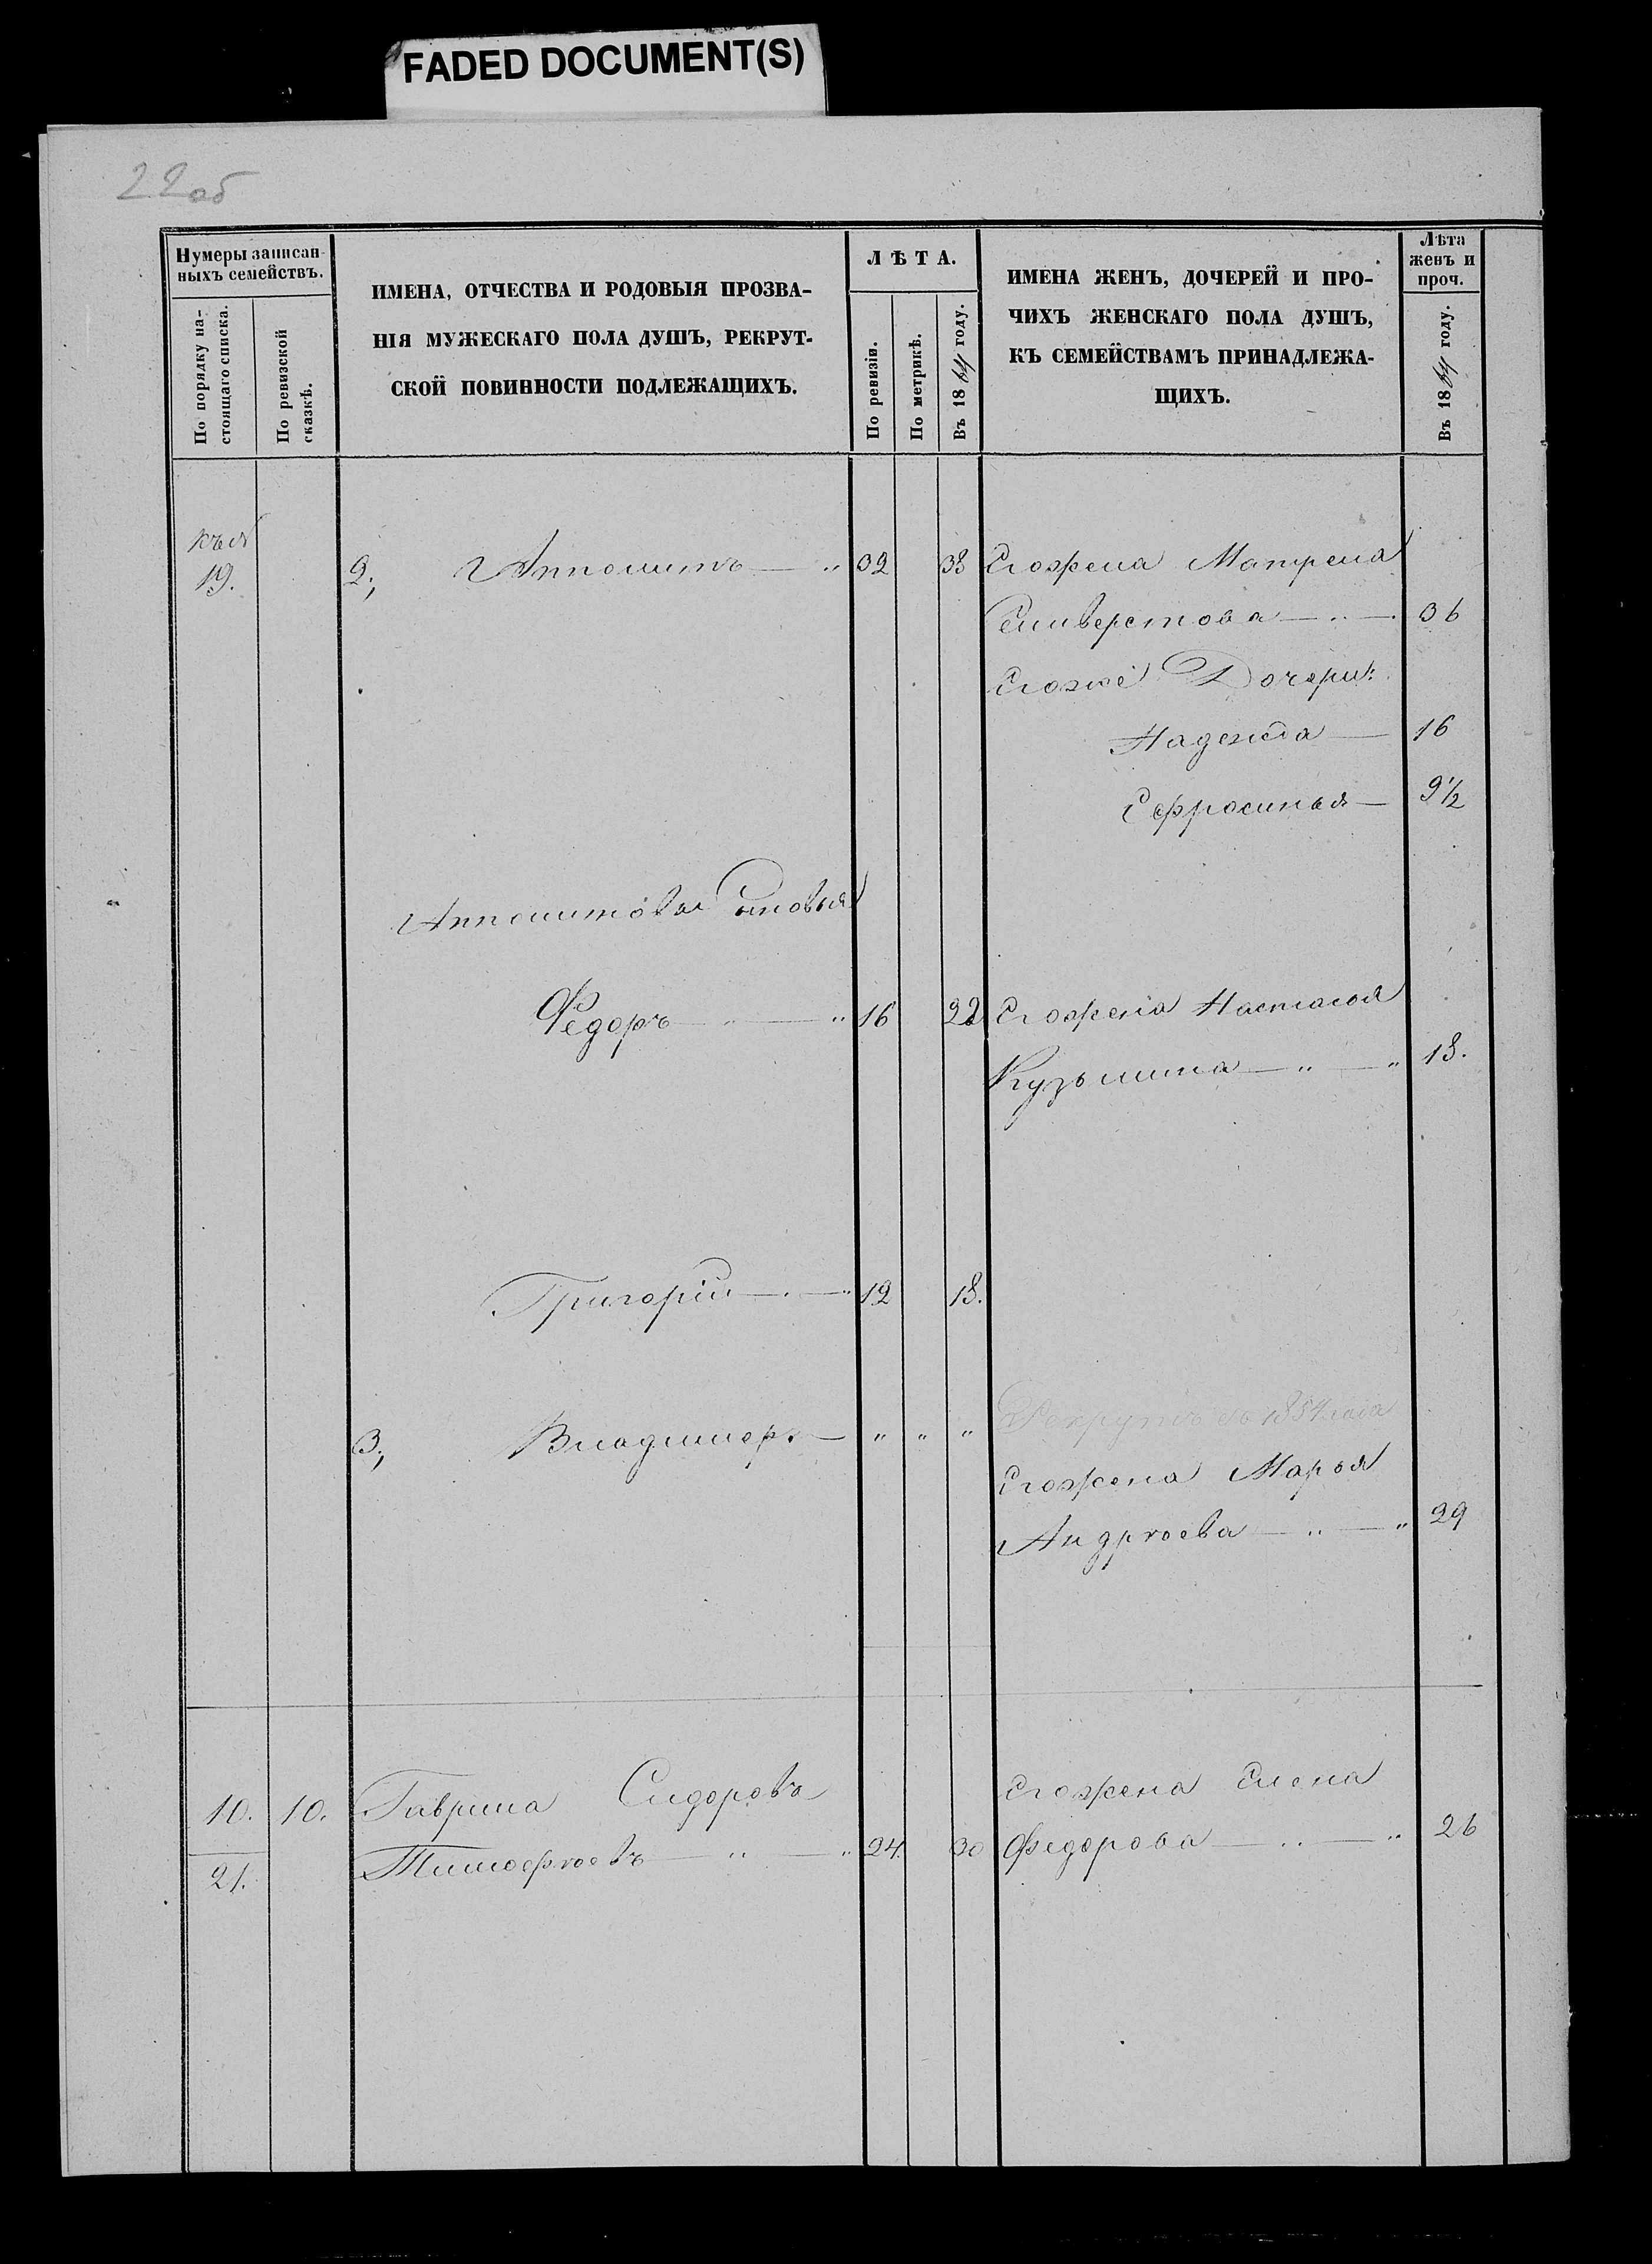 FADED DOCUMENT(S)
22 об
Нумеры записан-
ныхъ семействъ.
По порядку на-
стоящаго списка.
По ревизской
сказкѣ.
ИМЕНА, ОТЧЕСТВА И РОДОВЫЯ ПРОЗВА-
НІЯ МУЖЕСКАГО ПОЛА ДУШЪ, РЕКРУТ-
СКОЙ ПОВИННОСТИ ПОДЛЕЖАЩИХЪ.
ЛѢТА.
По ревизіи.
По метрикѣ.
Въ 1864 году.
ИМЕНА ЖЕНЪ, ДОЧЕРЕЙ И ПРО-
ЧИХЪ ЖЕНСКАГО ПОЛА ДУШЪ,
КЪ СЕМЕЙСТВАМЪ ПРИНАДЛЕЖА-
ЩИХЪ.
Лѣта
женъ и
проч.
Въ 1864 году.
19. 2, Апполитъ — „ 32 38 Его жена Матрена
Селиверстова — „ — 36
Его же Дочери:
Надежда — 16
Ефросинья — 9½
Апполитовы Сыновья
Федоръ — „ — „ 16 22 Его жена Настасья
Кузьмина — „ — „ 18.
Григорій — „ — „ 12 18.
3, Владимеръ — „ „ „ Рекрутъ съ 1854 года
Его жена Марья
Андрѣева — „ — „ 29
10. 10. Гаврила Сидоровъ Его жена Елена
Тимофѣевъ — „ — „ 24. 30 Федорова — „ — „ 26
21.